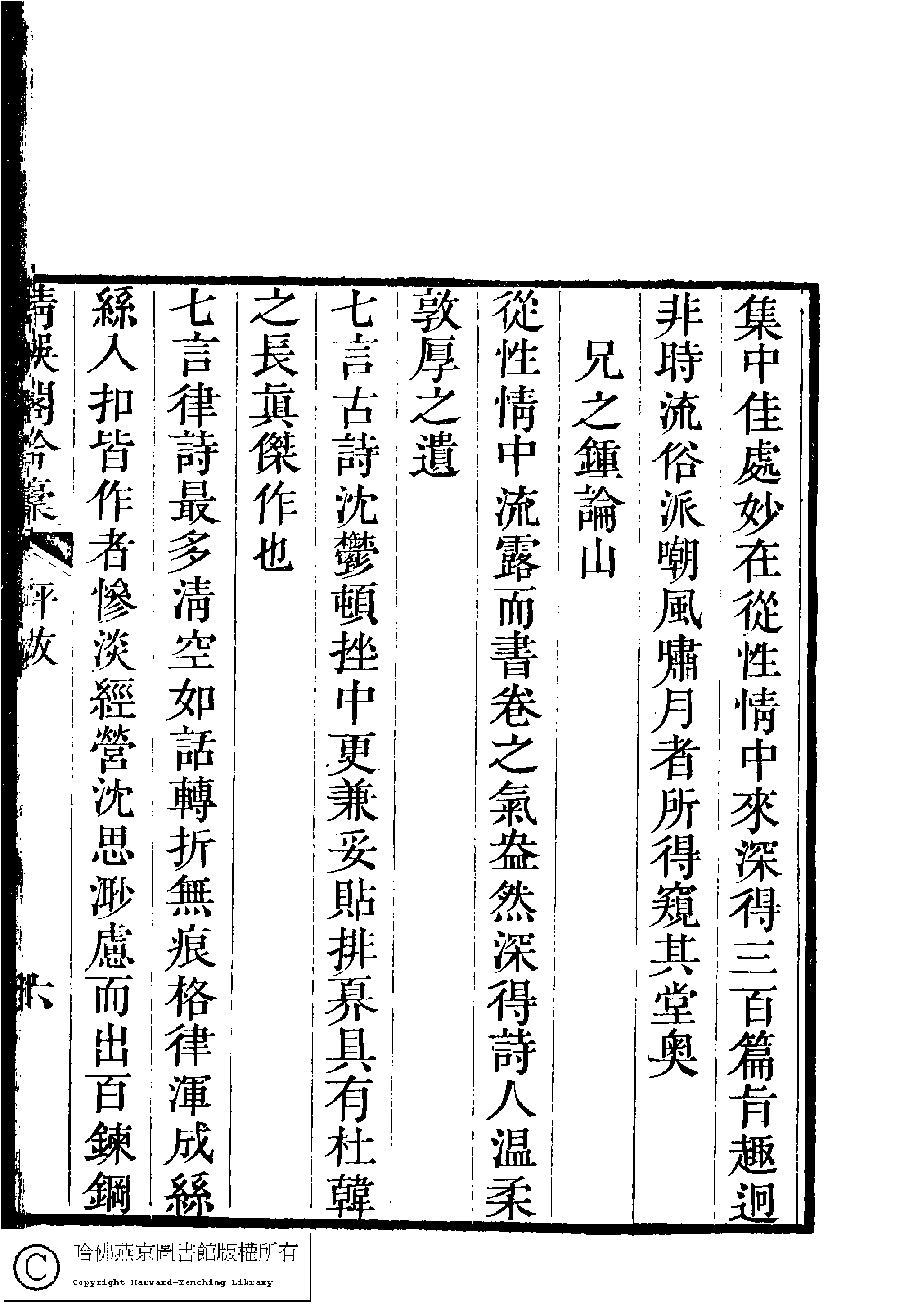 集中佳處妙在從性情中來深得三百篇旨趣迥
非時流俗派嘲風嘯月者所得窺其堂奧
兄之鍾論山
從性情中流露而書卷之氣盎然深得詩人温柔
敦厚之遺
七言古詩沈鬱頓挫中更兼妥貼排奡具有杜韓
之長眞傑作也
七言律詩最多淸空如話轉折無痕格律渾成絲
絲入扣皆作者慘淡經營沈思渺慮而出百鍊鋼
閣吟稾 評
六
哈佛燕京圖書館版權所有
Copyright Harvard-Yenching Library